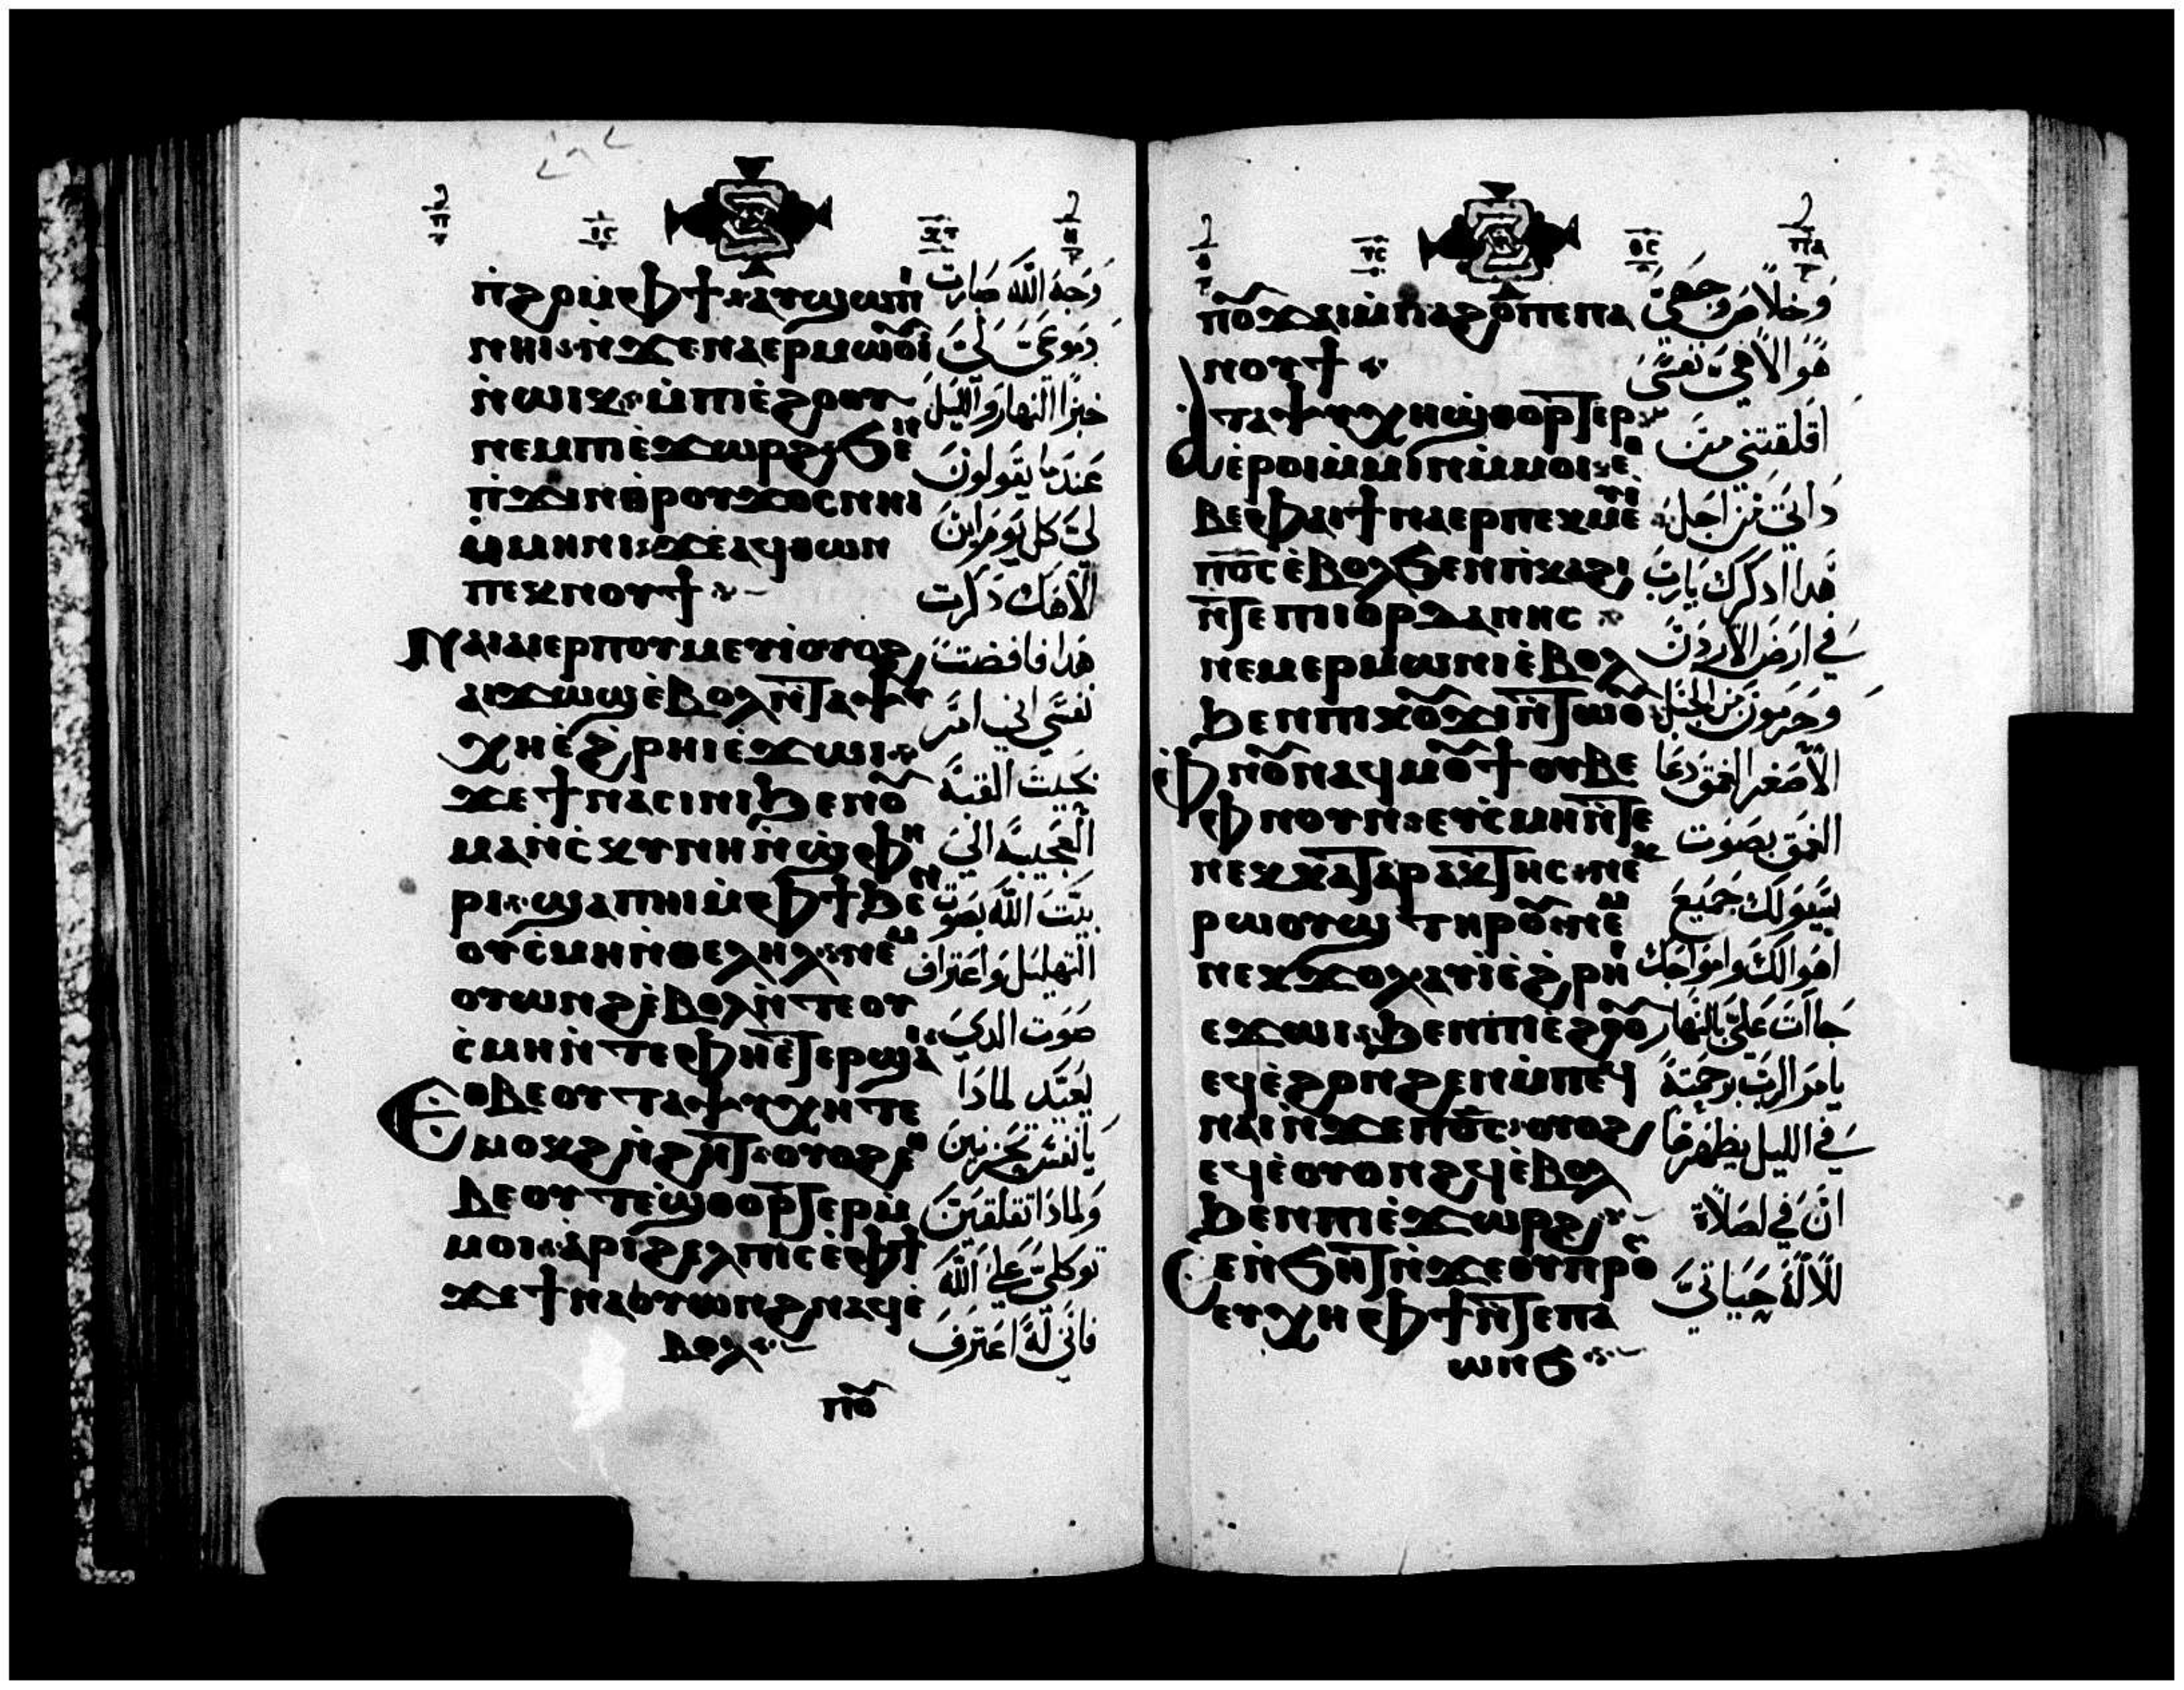 ⲛ̀ϩⲟⲙ̀ⲫϯ⳿ⲁⲩϣⲱⲡⲓ
ⲛⲏⲓ⳿ⲛ̀ϫⲉⲛⲁⲉⲣⲙⲱⲟⲩⲓ
ⲛ̀ⲱⲓⲕ⳿ⲙ̀ⲡⲓⲉ̀ϩⲟⲟⲩ
ⲛⲉⲙⲡⲓⲉ̀ϫⲱⲣϩ⳿ϧⲉⲛ
ⲡ̀ϫⲓⲛⲑ̀ⲣⲟⲩϫⲟⲥⲛⲏⲓ
ⲙ̀ⲙⲏⲛⲓ⳿ϫⲉⲁϥⲑⲱⲛ
ⲡⲉⲕⲛⲟⲩϯ
ⲛⲁⲓⲁⲓⲉⲣⲡⲟⲩⲙⲉⲩⲓ̀ⲟⲩⲟϩ
ⲁⲓϫⲱϣⲉ̀ⲃⲟⲗⲛ̀ⲧⲁⲯⲩ
ⲭⲏⲉ̀ϩ̀ⲣⲏⲓⲉ̀ϫⲱⲓ
ϫⲉϯⲛⲁⲥⲓⲛⲓϧⲉⲛⲟⲩ
ⲙⲁⲛ̀ⲥ̀ⲕⲩⲛⲏⲛ̀ϣ̀ⲫⲏ
ⲣⲓ⳿ϣⲁⲡⲏⲓⲙ̀ⲫϯϧⲉⲛ
ⲟⲩⲥ̀ⲙⲏⲛ̀ⲑⲉⲗⲏⲗ⳿ⲛⲉⲙ
ⲟⲩⲱⲛϩⲉ̀ⲃⲟⲗⲛ̀ⲧⲉⲟⲩ
ⲥ̀ⲙⲏⲛ̀ⲧⲉⲫⲏⲉ̀ⲧⲉⲣϣⲁⲓ
ⲉⲑⲃⲉⲟⲩⲧⲁⲯⲩⲭⲏⲧⲉ
ⲙⲟⲕϩⲛ̀ϩⲏⲧ⳿ⲟⲩⲟϩⲉⲑ
ⲃⲉⲟⲩⲧⲉϣ̀ⲑⲟⲣⲧⲉⲣⲙ̀
ⲙⲟⲓ⳿ⲁ̀ⲣⲓϩⲉⲗⲡⲓⲥⲉ̀ⲫϯ
ϫⲉϯⲛⲁⲟⲩⲱⲛϩⲛⲁϥⲉ̀
ⲃⲟⲗ
ⲡⲟⲩ
وجه الله صارت
دموعي لي
خبزا النهار والليل
عندما يقولون
لي كل يوم اين
الاهك ذكرت
هذا فافضت
نفسي الي امر
بحيث القبة
العجيبة الي
بيت الله بصوت
التهليل واعتراف
صوت الذي
يعيد لماذا
يا نفس تحزنين
ولماذا تقلقين
توكلي علي الله
فاني له اعترف
ⲡⲟⲩϫⲁⲓⲙ̀ⲡⲁϩⲟⲡⲉⲡⲁ
ⲛⲟⲩϯ
ⲁⲧⲁⲯⲩⲭⲏϣ̀ⲑⲟⲣⲧⲉⲣ
ⲉ̀ⲣⲟⲓⲙ̀ⲙⲓⲛⲙ̀ⲙⲟⲓ⳿ⲉⲑ
ⲃⲉⲫⲁⲓϯⲛⲁⲉⲣⲡⲉⲕⲙⲉⲩⲓ̀
ⲡⲟ̅ⲥ̅ⲉ̀ⲃⲟⲗϧⲉⲛⲡ̀ⲕⲁϩⲓ
ⲛ̀ⲧⲉⲡⲓⲓⲟⲣⲇⲁⲛⲏⲥ
ⲛⲉⲙⲉⲣⲙⲱⲛⲓⲉ̀ⲃⲟⲗ
ϧⲉⲛⲡⲓⲕⲟⲩϫⲓⲛ̀ⲧⲱⲟⲩ
ⲫⲛⲟⲩⲛⲁϥⲙⲟⲩϯⲟⲩⲃⲉ
ⲫⲛⲟⲩⲛ⳿ⲉⲩⲥ̀ⲙⲏⲛ̀ⲧⲉ
ⲛⲉⲕⲕⲁⲧⲁⲣⲁⲕⲧⲏⲥ⳿ⲛⲉⲕ
ⲣⲱⲟⲩϣⲧⲏⲣⲟⲩⲛⲉⲙ
ⲛⲉⲕϫⲟⲗⲁⲩⲓ̀ⲉ̀ϩ̀ⲣⲏⲓ
ⲉϫⲱⲓ⳿ϧⲉⲛⲡⲓⲉ̀ϩⲟⲟⲩ
ⲉϥⲉ̀ϩⲟⲛϩⲉⲛⲙ̀ⲡⲉϥ
ⲛⲁⲓⲛ̀ϫⲉⲡⲟ̅ⲥ̅⳿ⲟⲩⲟϩ
ⲉϥⲉ̀ⲟⲩⲟⲛϩϥⲉ̀ⲃⲟⲗ
ϧⲉⲛⲡⲓⲉ̀ϫⲱⲣϩ
ⲥⲉⲛ̀ϧⲏⲧⲛ̀ϫⲉⲟⲩⲡⲣⲟⲥ
ⲉⲩⲭⲏⲙ̀ⲫϯⲛ̀ⲧⲉⲡⲁ
ⲱⲛϧ
وخلاص وجهي
هو الاهي نفسي
اقلقتني من
ذاتي من اجل
هذا اذكرك يارب
في ارض الاردن
وحرمون من الجبل
الاصغر الغمق دعا
الغمق بصوت
جميع
اهوالك وامواجك
جاات علي بالنهار
يامر الرب برحمته
في الليل يظهرها
ان في لصلاة
للالة حياتي